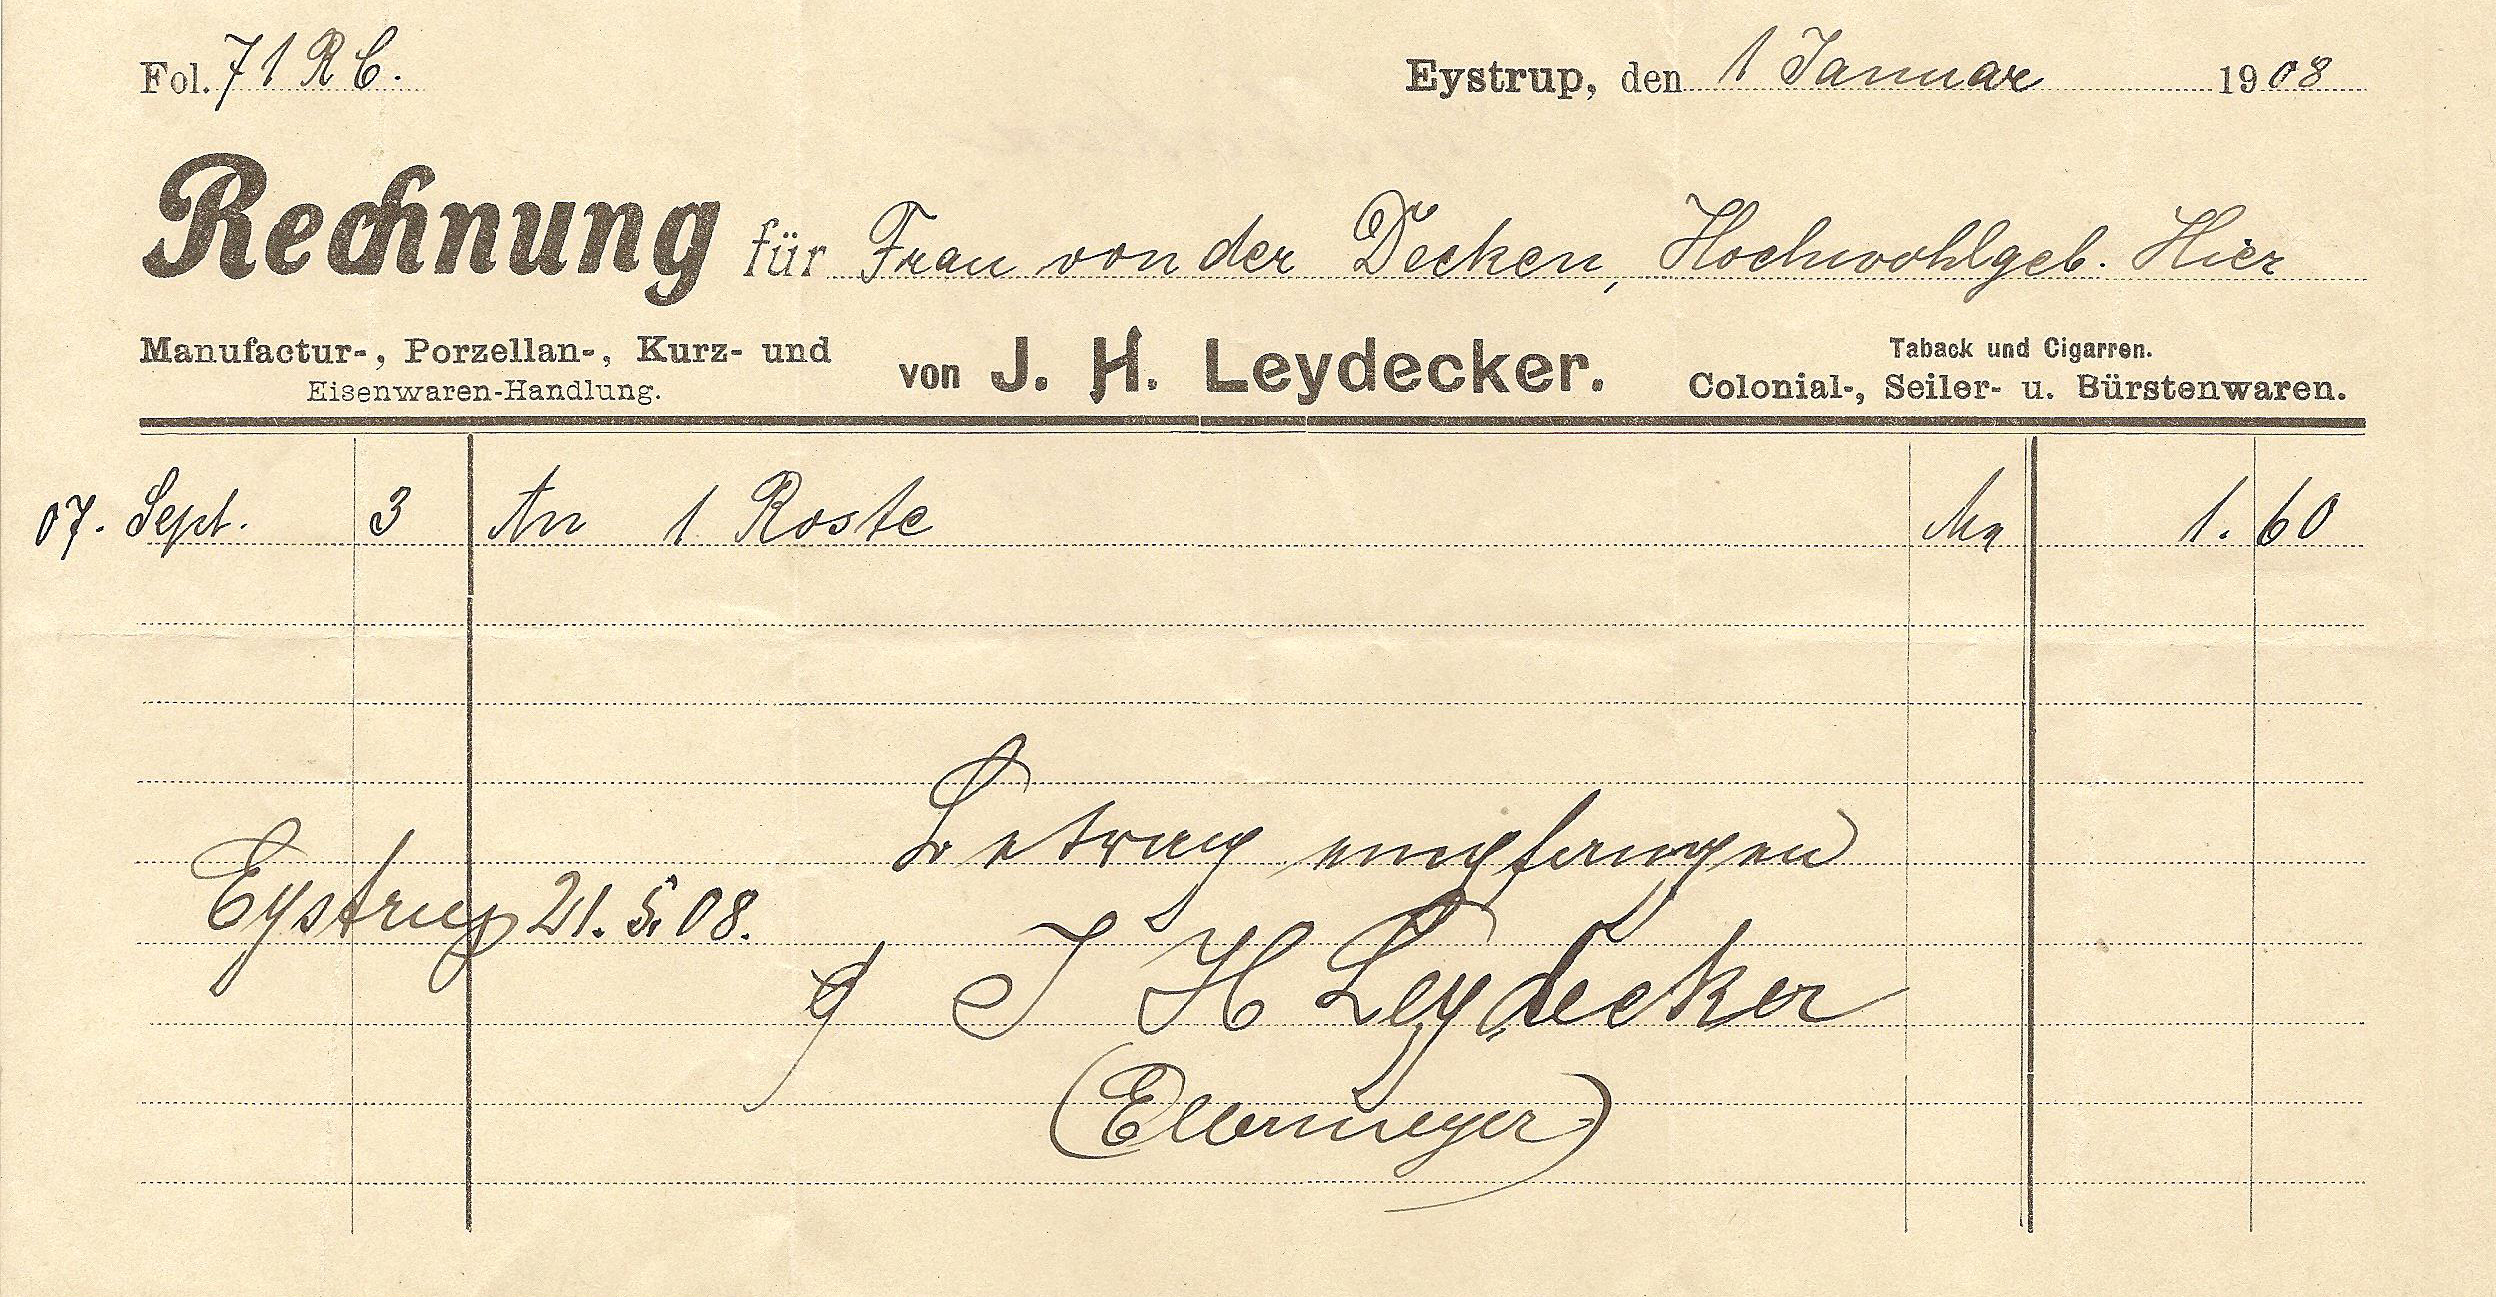 Fol. 71 R C. Eystrup, den 1 Januar 1908
Rechnung für Frau von der Decken, Hochwohlgeb. Hier
Manufactur-, Porzellan-, Kurz- und
Eisenwaren-Handlung.
von J. H. Leydecker.
Taback und Cigarren.
Colonial-, Seiler- u. Bürstenwaren.
07. Sept. 3 An 1 Roste Mk 1.60
Betrag empfangen
Eystrup 21. 5. 08.
J H Leydecker
(Ellermeyer)